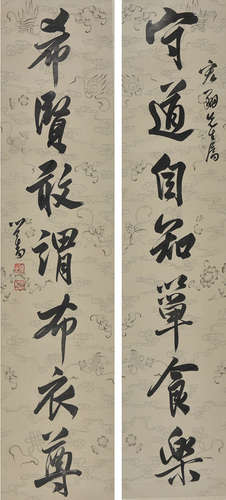 守道自知箪食樂
希賢敢謂布衣尊
先生屬
溥儒